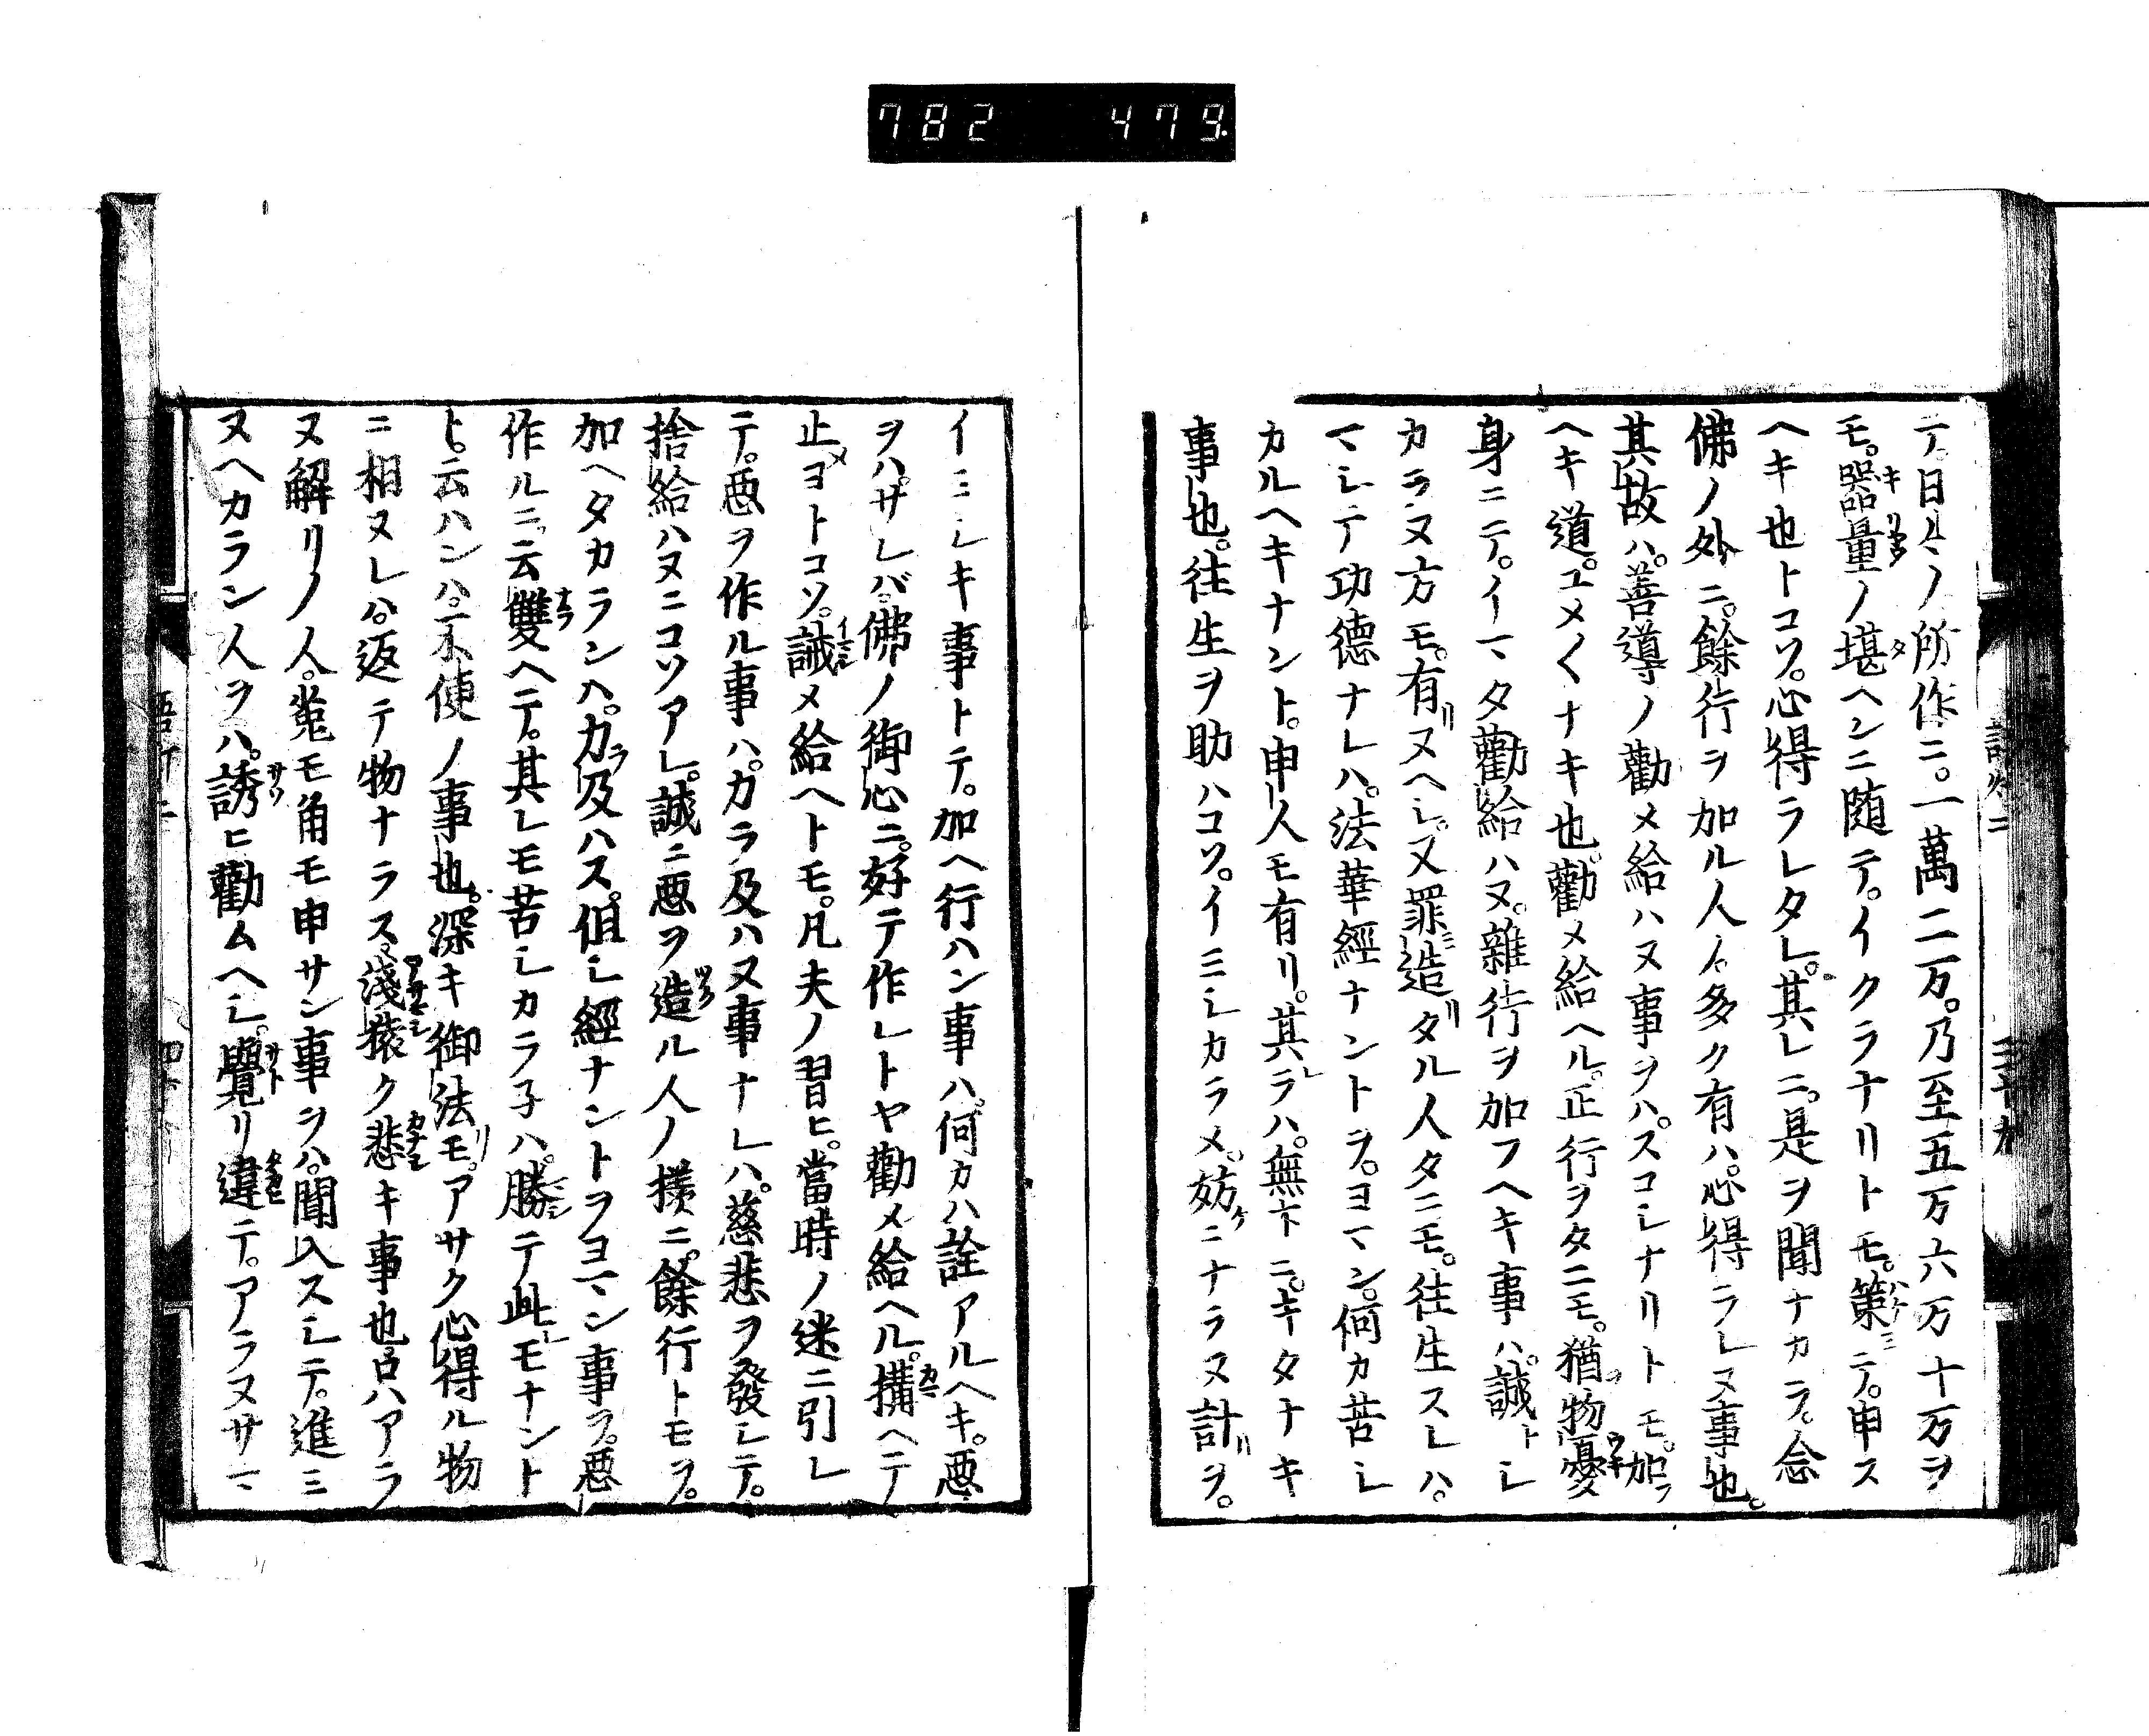 782 479
テ。日〻ノ所作ニ。一萬二万。乃至五万六万十万ヲ
モ。器量ノ堪ヘンニ随テ。イクラナリトモ。策テ。申ス
ヘキ也トコソ。心得ラレタレ。其レニ。是ヲ聞ナカラ。念
佛ノ外ニ。餘行ヲ加ル人ノ。多ク有ハ。心得ラレヌ事也。
其故ハ。善導ノ勸メ給ハヌ事ヲハ。スコシナリトモ。加フ
ヘキ道。ユメ〱ナキ也。勸メ給ヘル。正行ヲタニモ。猶物憂
身ニテ。イマタ勸給ハヌ。雜行ヲ加フヘキ事ハ。誠トシ
カラヌ方モ。有リヌヘシ。又罪造タル人タニモ。往生スレハ。
マシテ功德ナレハ。法華經ナントヲ。ヨマン。何カ苦シ
カルヘキナント。申人モ有リ。其ラハ。無下ニ。キタナキ
事也。往生ヲ助ハコソ。イミシカラメ。妨ケニナラヌ計リヲ。
イミシキ事トテ。加ヘ行ハン事ハ。何カハ詮アルヘキ。惡
ヲハ。サレバ。佛ノ御心ニ。好テ作レトヤ勸メ給ヘル。構ヘテ
止メヨトコソ。誡メ給ヘトモ。凡夫ノ習ヒ。當時ノ迷ニ引レ
テ。惡ヲ作ル事ハ。力ラ及ハヌ事ナレハ。慈悲ヲ發シテ。
捨給ハヌニコソアレ。誠ニ惡ヲ造ル人ノ樣ニ。餘行トモヲ。
加ヘタカランハ。力ラ及ハス。但シ經ナントヲヨマン事ヲ。惡
作ルニ。云雙ヘテ。其レモ苦シカラ子ハ。勝テ此レモナント
ト。云ハンハ。不便ノ事也。深キ御法モ。アサク心得ル物
ニ相ヌレハ。返テ物ナラス。淺猿ク悲キ事也。只ハアラ
ヌ解リノ人。菟モ角モ申サン事ヲハ。聞入スシテ。進ミ
ヌヘカラン人ヲハ。誘ヒ勸ムヘシ。覺リ違テ。アラヌサマ